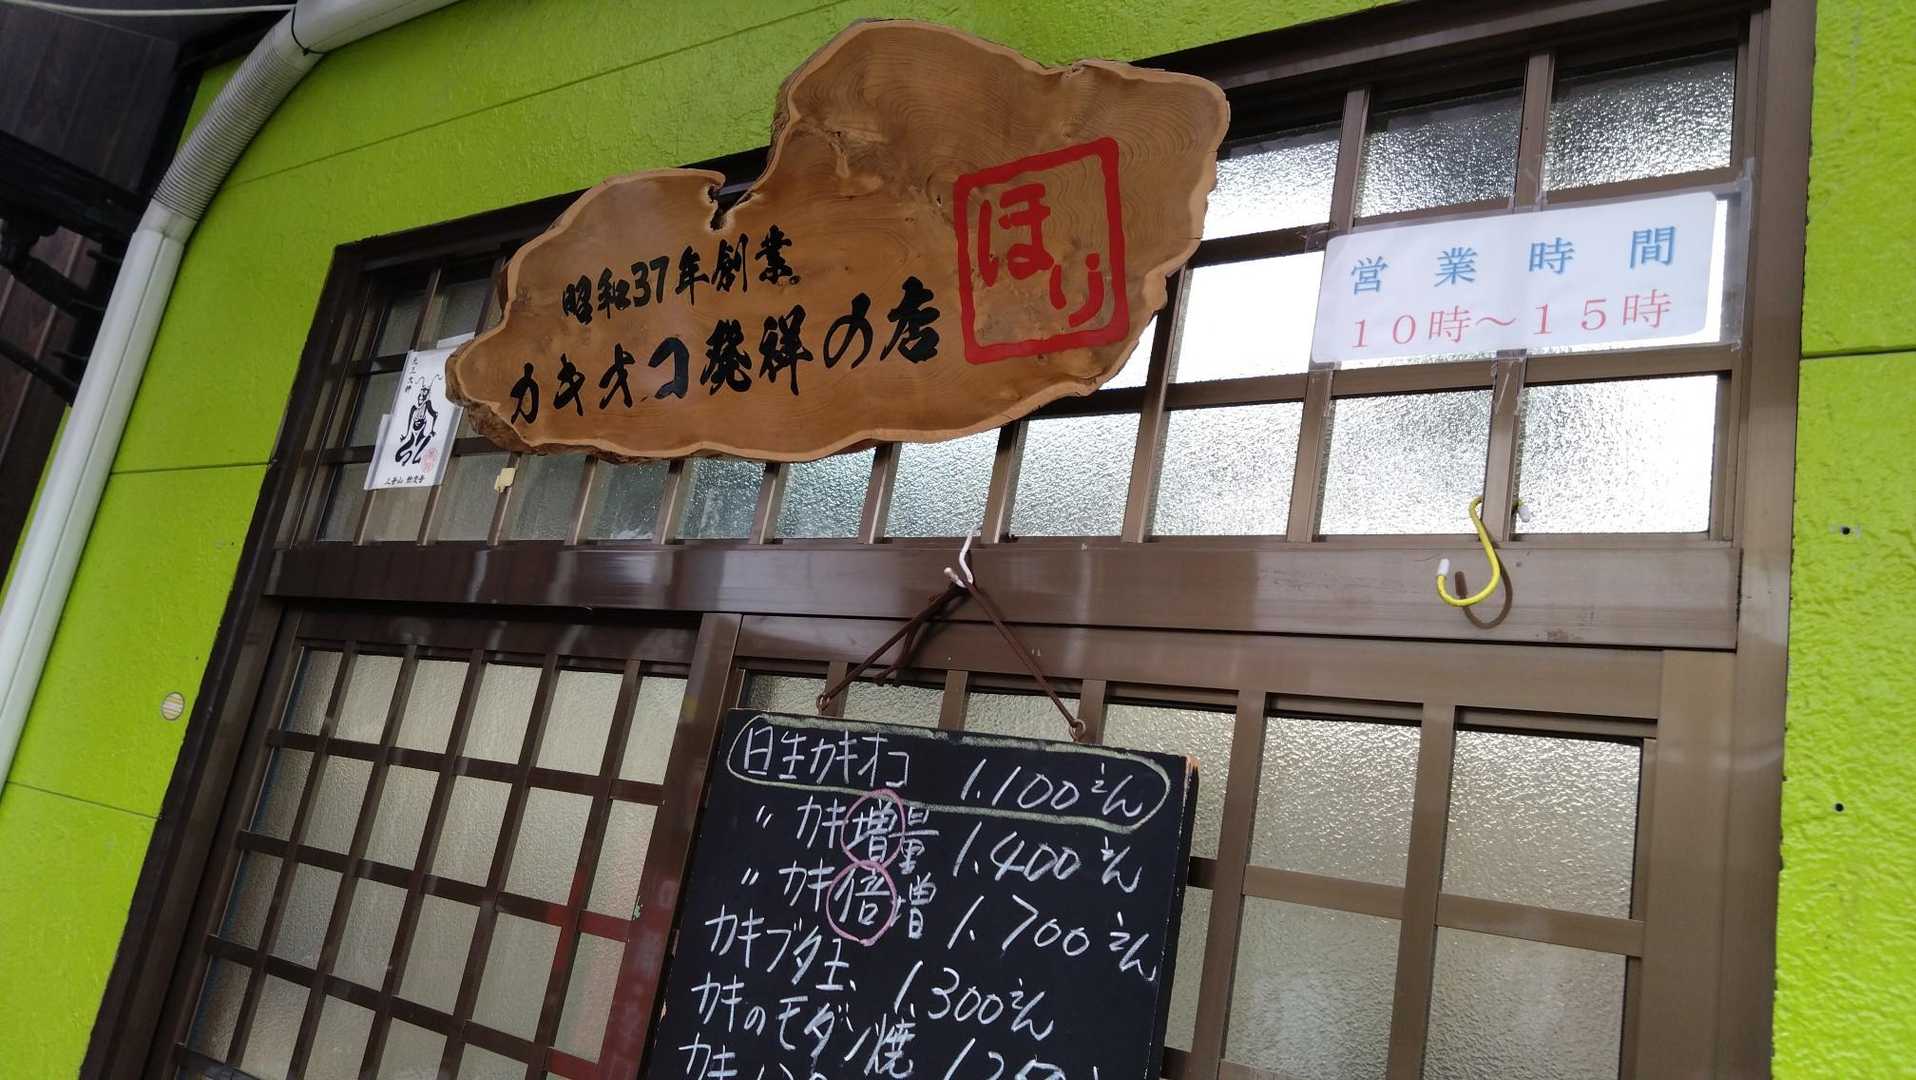 昭和37年創業。
カキオコ発祥の店
ほり
営業時間
10時～15時
日生カキオコ 1.100えん
〃カキ増量 1.400えん
〃カキ倍増 1.700えん
カキブタ玉、1.300えん
カキのモダン焼
カキ